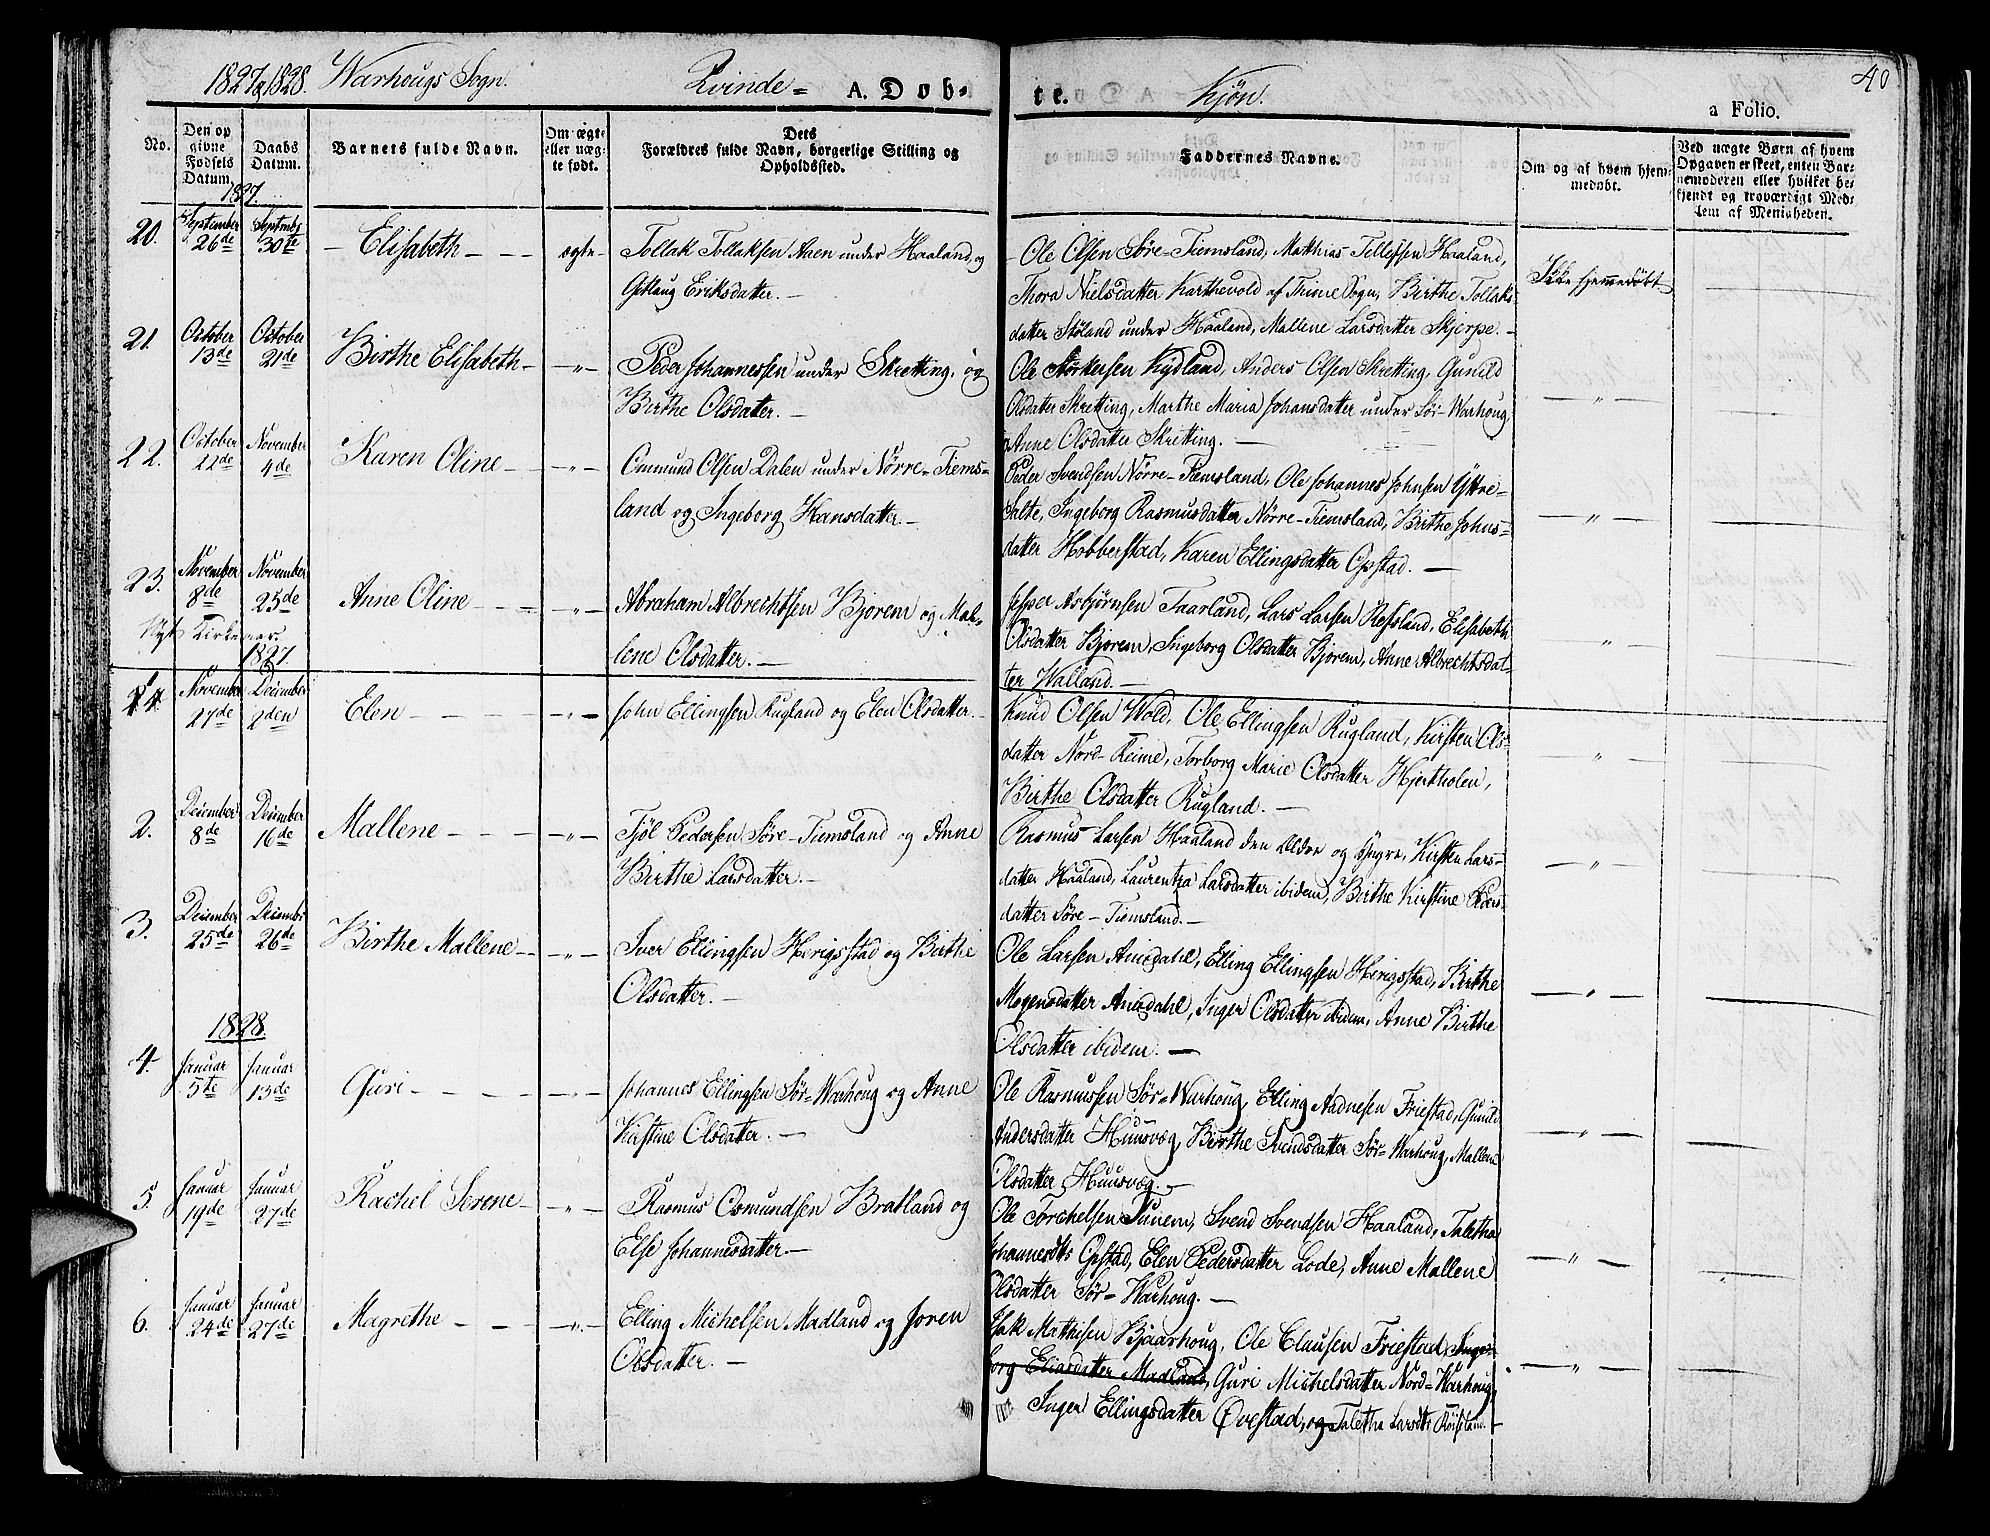 1827 & 1828. Warhougs Sogn. Qvinde- A. Døb- te. Kjön. 40
a Folio.
No. Den op givne Fødsels Datum. Daabs Datum. Barnets fulde Navn. Om ægte eller uægte født. Dets Forældres fulde Navn, borgerlige Stilling og Opholdssted. Faddernes Navne. Om og af hvem hjemmedøbt. Ved uægte Børn af hvem Opgaven er skeet, enten Barnemoderen eller hvilket bekjendt og troværdigt Medlem af Menigheden.
1827.
20. September 26de Septmbr 30te Elisabeth ægte Tollak Tollaksen Aaen under Haaland, og
Gitlaug Eriksdatter.
Ole Olsen Søre-Tiemsland, Matthias Tellefsen Haaland,
Thora Nielsdatter Karthevold af Thime Sogn, Birthe Tollaks-
datter Støland under Haaland, Mallene Larsdatter Skjerpe.
Ikke hjemmedöbt
21. October 13de October 21de Birthe Elisabeth — " — Peder Johannessen under Skretting, og
Birthe Olsdatter.
Ole Størkersen Kydland, Anders Olsen Skretting, Gunild
Olsdatter Skretting, Marthe Maria Johansdatter under Sör-Warhoug,
Anne Olsdatter Skretting.
— " —
22. October 22de November 4de Karen Oline — " — Ommund Olsen Dalen under Nørre-Tiems-
land og Ingeborg Hansdatter.
Peder Svendsen Nørre-Tiemsland, Ole Johannes Johnsen Yttre-
Salte, Ingeborg Rasmusdatter Nørre-Tiemsland, Birthe Johns-
datter Hobberstad, Karen Ellingsdatter Opstad.
— " —
23. November 8de November 25de Anne Oline — " — Abraham Albrechtsen Bjorem og Mal-
lene Olsdatter.
Jesper Asbjörnsen Taarland, Lars Larsen Refsland, Elisabeth
Olsdatter Bjorem, Ingeborg Olsdatter Bjorem, Anne Albrechtsdat-
ter Walland.
"
Nyt Kirkeaar
1827
1. November 27de December 2den Elen — " — John Ellingsen Rugland og Elen Olsdatter.
Knud Olsen Wold, Ole Ellingsen Rugland, Kirsten Ols-
datter Nord-Reime, Torborg Marie Olsdatter Hjertholen,
Birthe Olsdatter Rugland.
"
2. December 8de December 16de Mallene — " — Tjöl Pedersen Søre-Tiemsland og Anne
Birthe Larsdatter.
Rasmus Larsen Haaland den Ældre og Yngre, Kirsten Lars-
datter Haaland, Laurentza Larsdatter ibidem, Birthe Kirstine Peders-
datter Søre-Tiemsland.
— " —
3. December 25de Decembr 26de Birthe Mallene — " — Iver Ellingsen Herigsstad og Birthe
Olsdatter.
Ole Larsen Aniksdahl, Elling Ellingsen Herigsstad, Birthe
Mogensdatter Aniksdahl, Inger Olsdatter ibidem, Anne Birthe
Olsdatter ibidem.
— " —
1828.
4. Januar 5te Januar 13de Guri — " — Johannes Ellingsen Sör-Warhoug og Anne
Kirstine Olsdatter.
Ole Rasmussen Sör-Warhoug, Elling Aadnesen Friestad, Gunild
Andersdatter Huusvæg, Birthe Svendsdatter Sör-Warhoug, Mallene
Olsdatter Huusvæg.
— " —
5. Januar 19de Januar 27de Rachel Serene — " — Rasmus Osmundsen Bratland og
Else Johannesdatter.
Ole Torchelsen Tunem, Svend Svendsen Haaland, Taletha
Johannesdtr Opstad, Elen Pedersdatter Lode, Anne Mallene
Olsdatter Sör-Warhoug.
— " —
6. Januar 24de Januar 27de Magrethe — " — Elling Michelsen Madland og Joren
Olsdatter.
Isak Mathisen Bjaarhoug, Ole Clausen Friestad, Inge-
borg Eliasdatter Madland, Guri Michelsdatter Nord-Warhoug,
Inger Ellingsdatter Ovestad, og Taletha Larsdtr
— " —